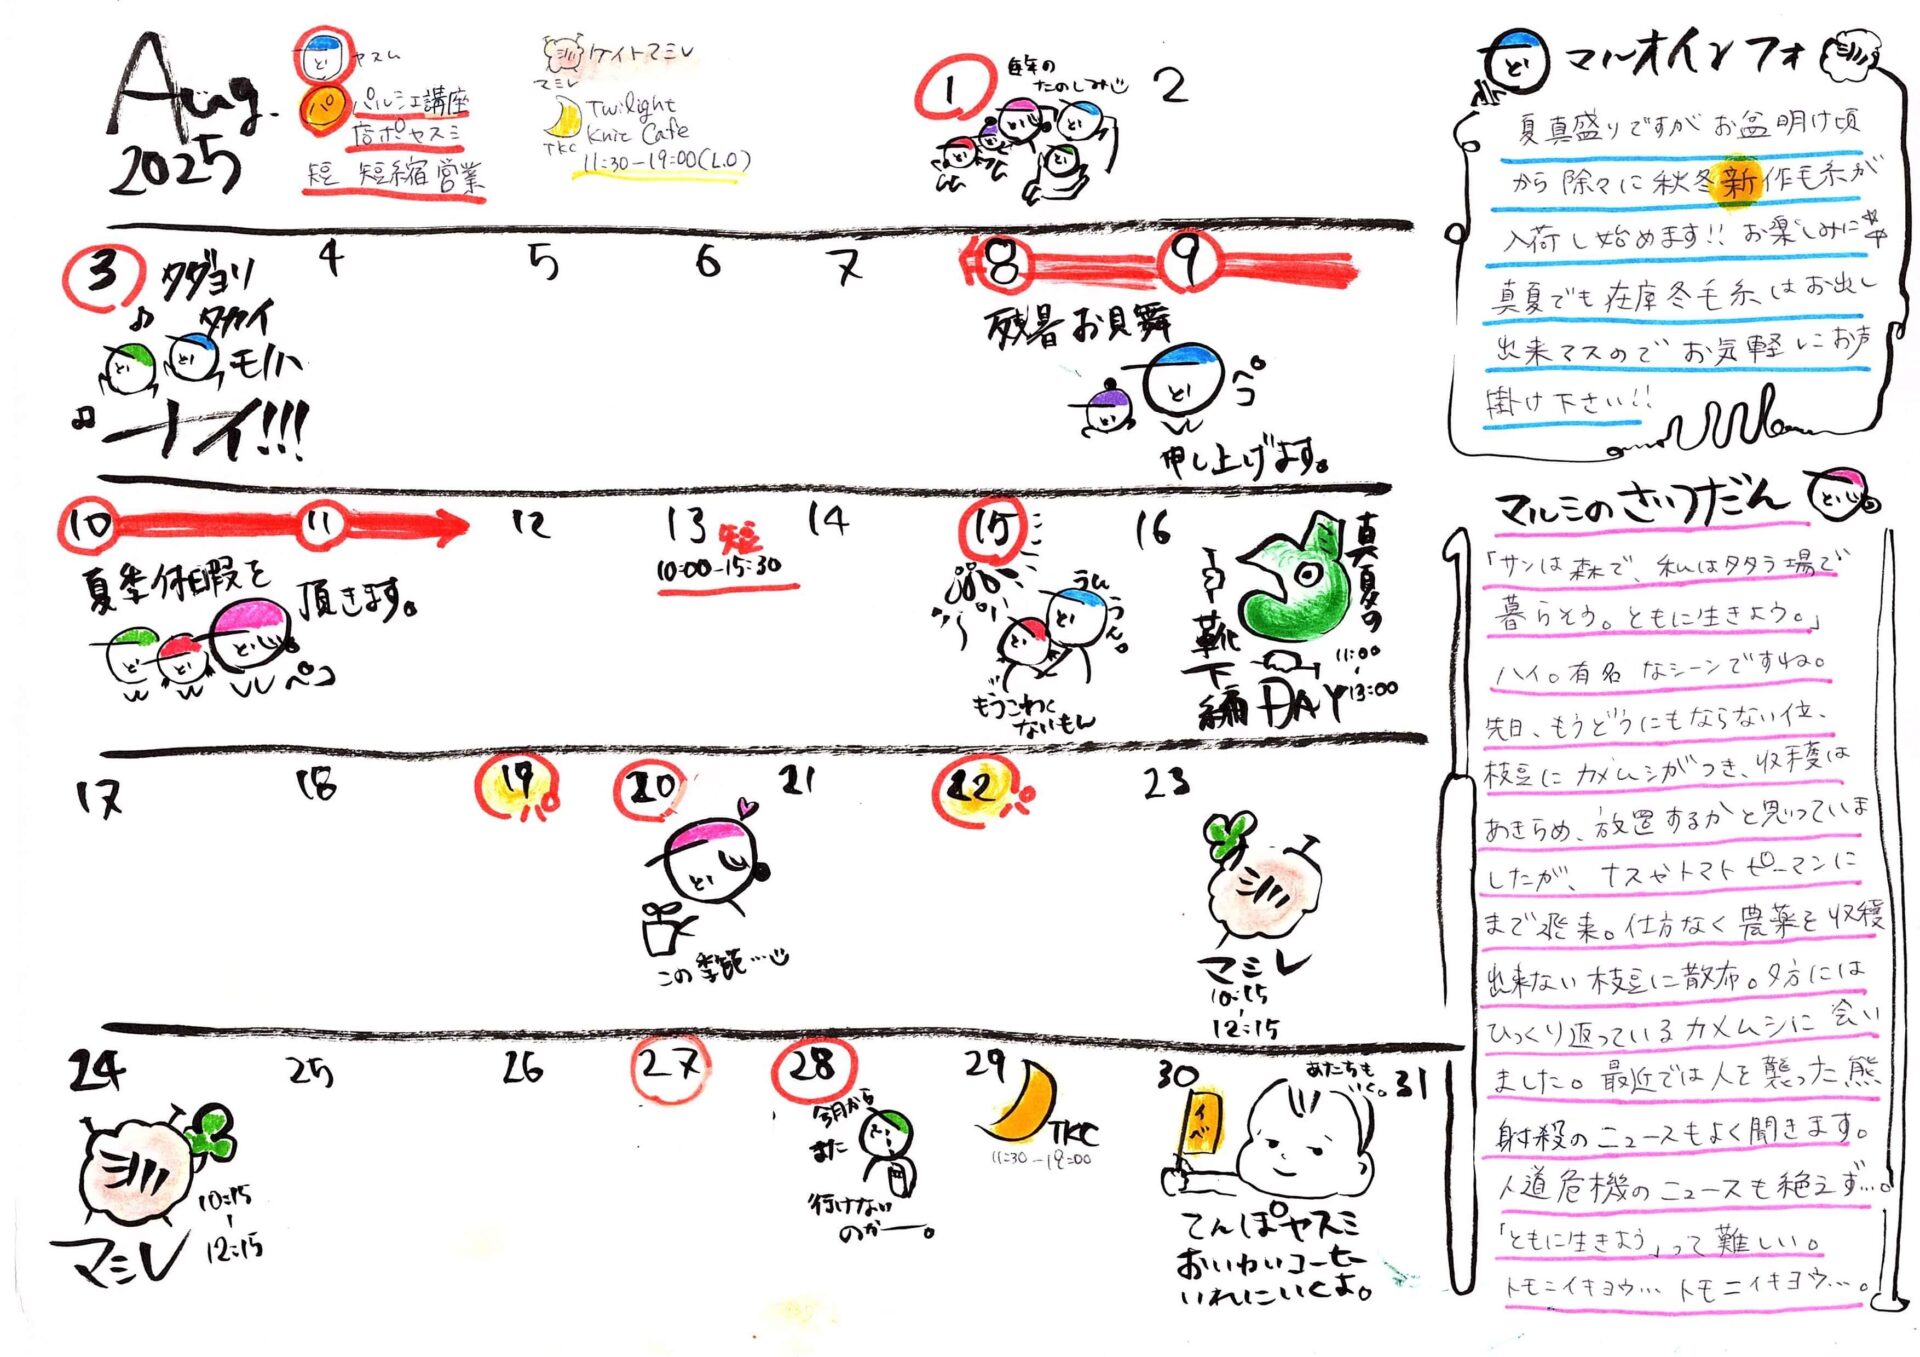 Aug.
2025
ど
ヤスム
パ
パルシェ講座
店ポヤスミ
短 短縮営業
ミル ケイトマミレ
マミレ
Twilight
Knit Cafe
TKC
11:30-19:00(L.O)
1
毎年の
たのしみじ
2
3
タダヨリ
タカイ
モノハ
ナイ!!!
4
5
6
7
8
9
残暑お見舞
ペコ
申し上げます。
10
11
夏季休暇を
頂きます。
ペコ
12
13
短
10:00-15:30
14
15
うんうん。
もうこわく
ないもん
16
真夏の
靴下編DAY
11:00
-
13:00
17
18
19
20
この季節…
21
22
23
マミレ
10:15
-
12:15
24
10:15
-
12:15
マミレ
25
26
27
28
今月から
また
行けない
のかー。
29
TKC
11:30-19:00
30
イベ
あたちも
いく。
31
てんぽヤスミ
おいわいコーヒー
いれにいくよ。
マルオインフォ
夏真盛りですがお盆明け頃
から除々に秋冬新作毛糸が
入荷し始めます!!お楽しみに
真夏でも在庫冬毛糸はお出し
出来マスのでお気軽にお声
掛け下さい!!
マルミのざつだん
「サンは森で、私はタタラ場で
暮らそう。ともに生きよう。」
ハイ。有名なシーンですね。
先日、もうどうにもならない位、
枝豆にカメムシがつき、収穫は
あきらめ、放置するかと思っていま
したが、ナスやトマトピーマンに
まで飛来。仕方なく農薬を収穫
出来ない枝豆に散布。夕方には
ひっくり返っているカメムシに会い
ました。最近では人を襲った熊
射殺のニュースもよく聞きます。
人道危機のニュースも絶えず…。
「ともに生きよう」って難しい。
トモニイキヨウ…トモニイキヨウ…。